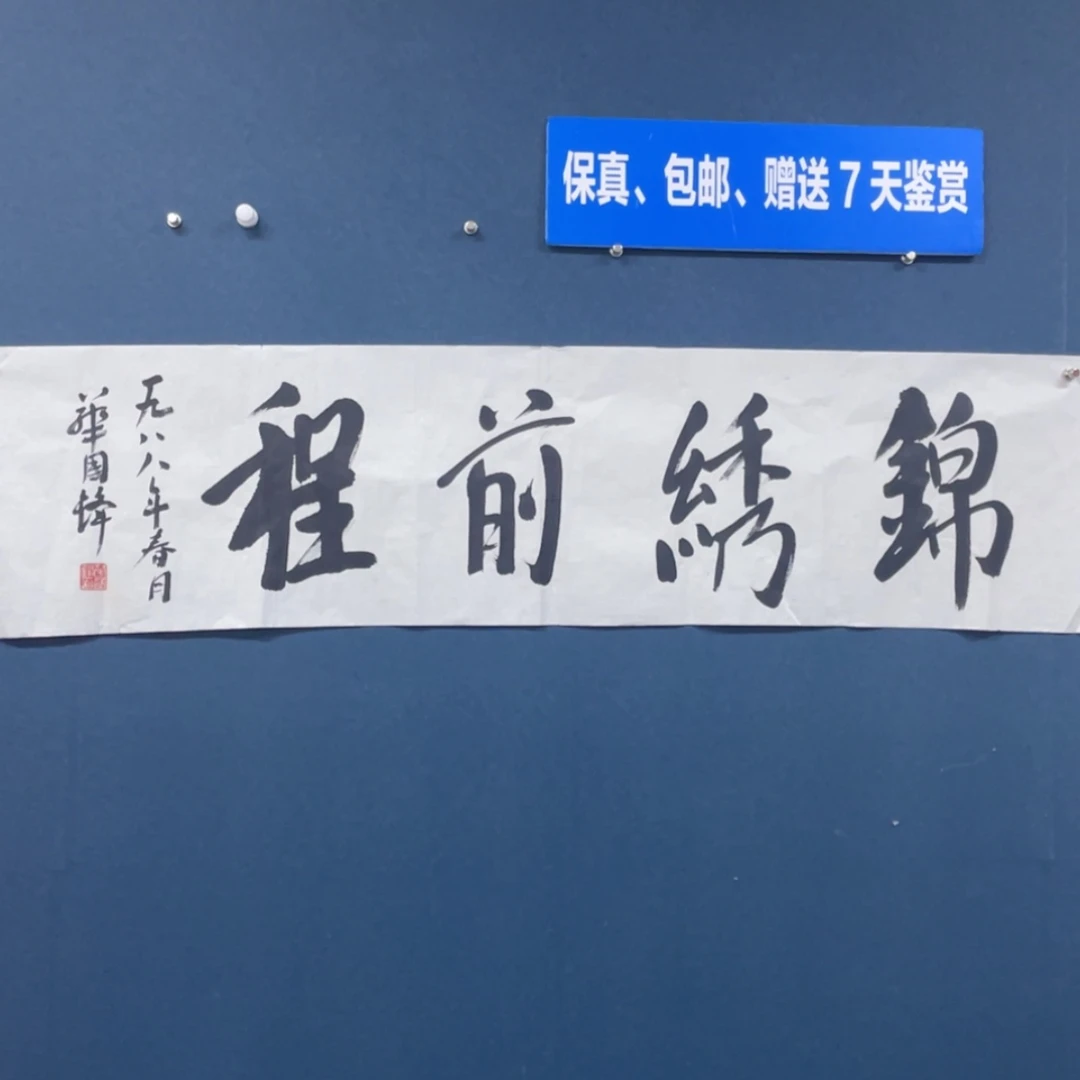 保真、包邮、赠送7天鉴赏
錦綉前程
一九八八年春月
華国锋